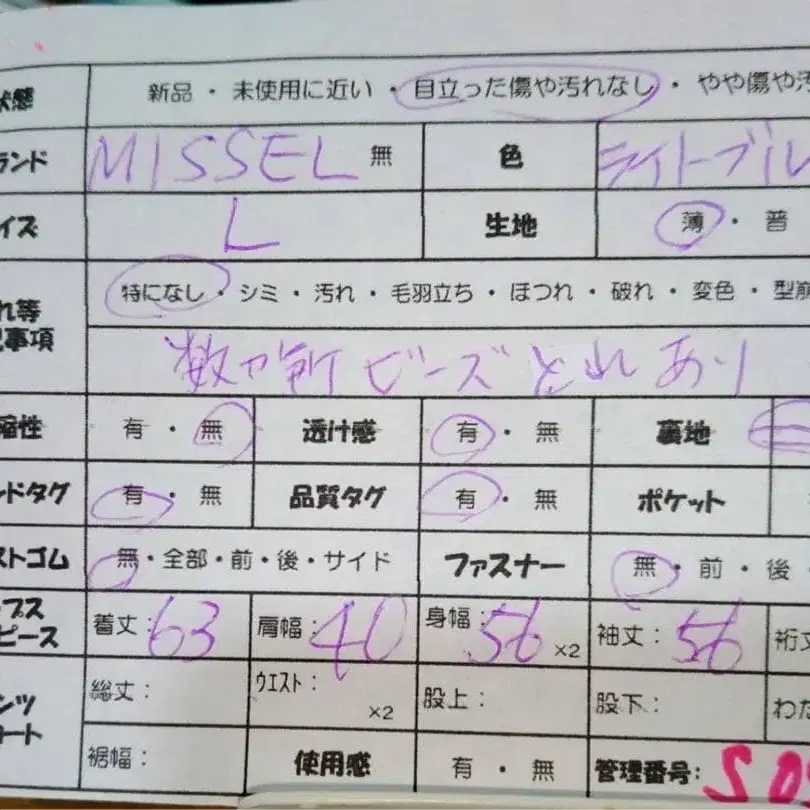 状態 新品 ・ 未使用に近い ・ 目立った傷や汚れなし ・ やや傷や汚
ランド MISSEL 無 色 ライトブル
イズ L 生地 薄 ・ 普
れ等 特になし ・ シミ ・ 汚れ ・ 毛羽立ち ・ ほつれ ・ 破れ ・ 変色 ・ 型崩
記事項 数カ所 ビーズ とれ あり
縮性 有 ・ 無 透け感 有 ・ 無 裏地
ンドタグ 有 ・ 無 品質タグ 有 ・ 無 ポケット
ストゴム 無 ・ 全部 ・ 前 ・ 後 ・ サイド ファスナー 無 ・ 前 ・ 後
ップス
ピース 着丈:63 肩幅:40 身幅:56 ×2 袖丈:56 裄丈
ンツ 総丈: ウエスト: ×2 股上: 股下: わた
ート 裾幅: 使用感 有 ・ 無 管理番号: